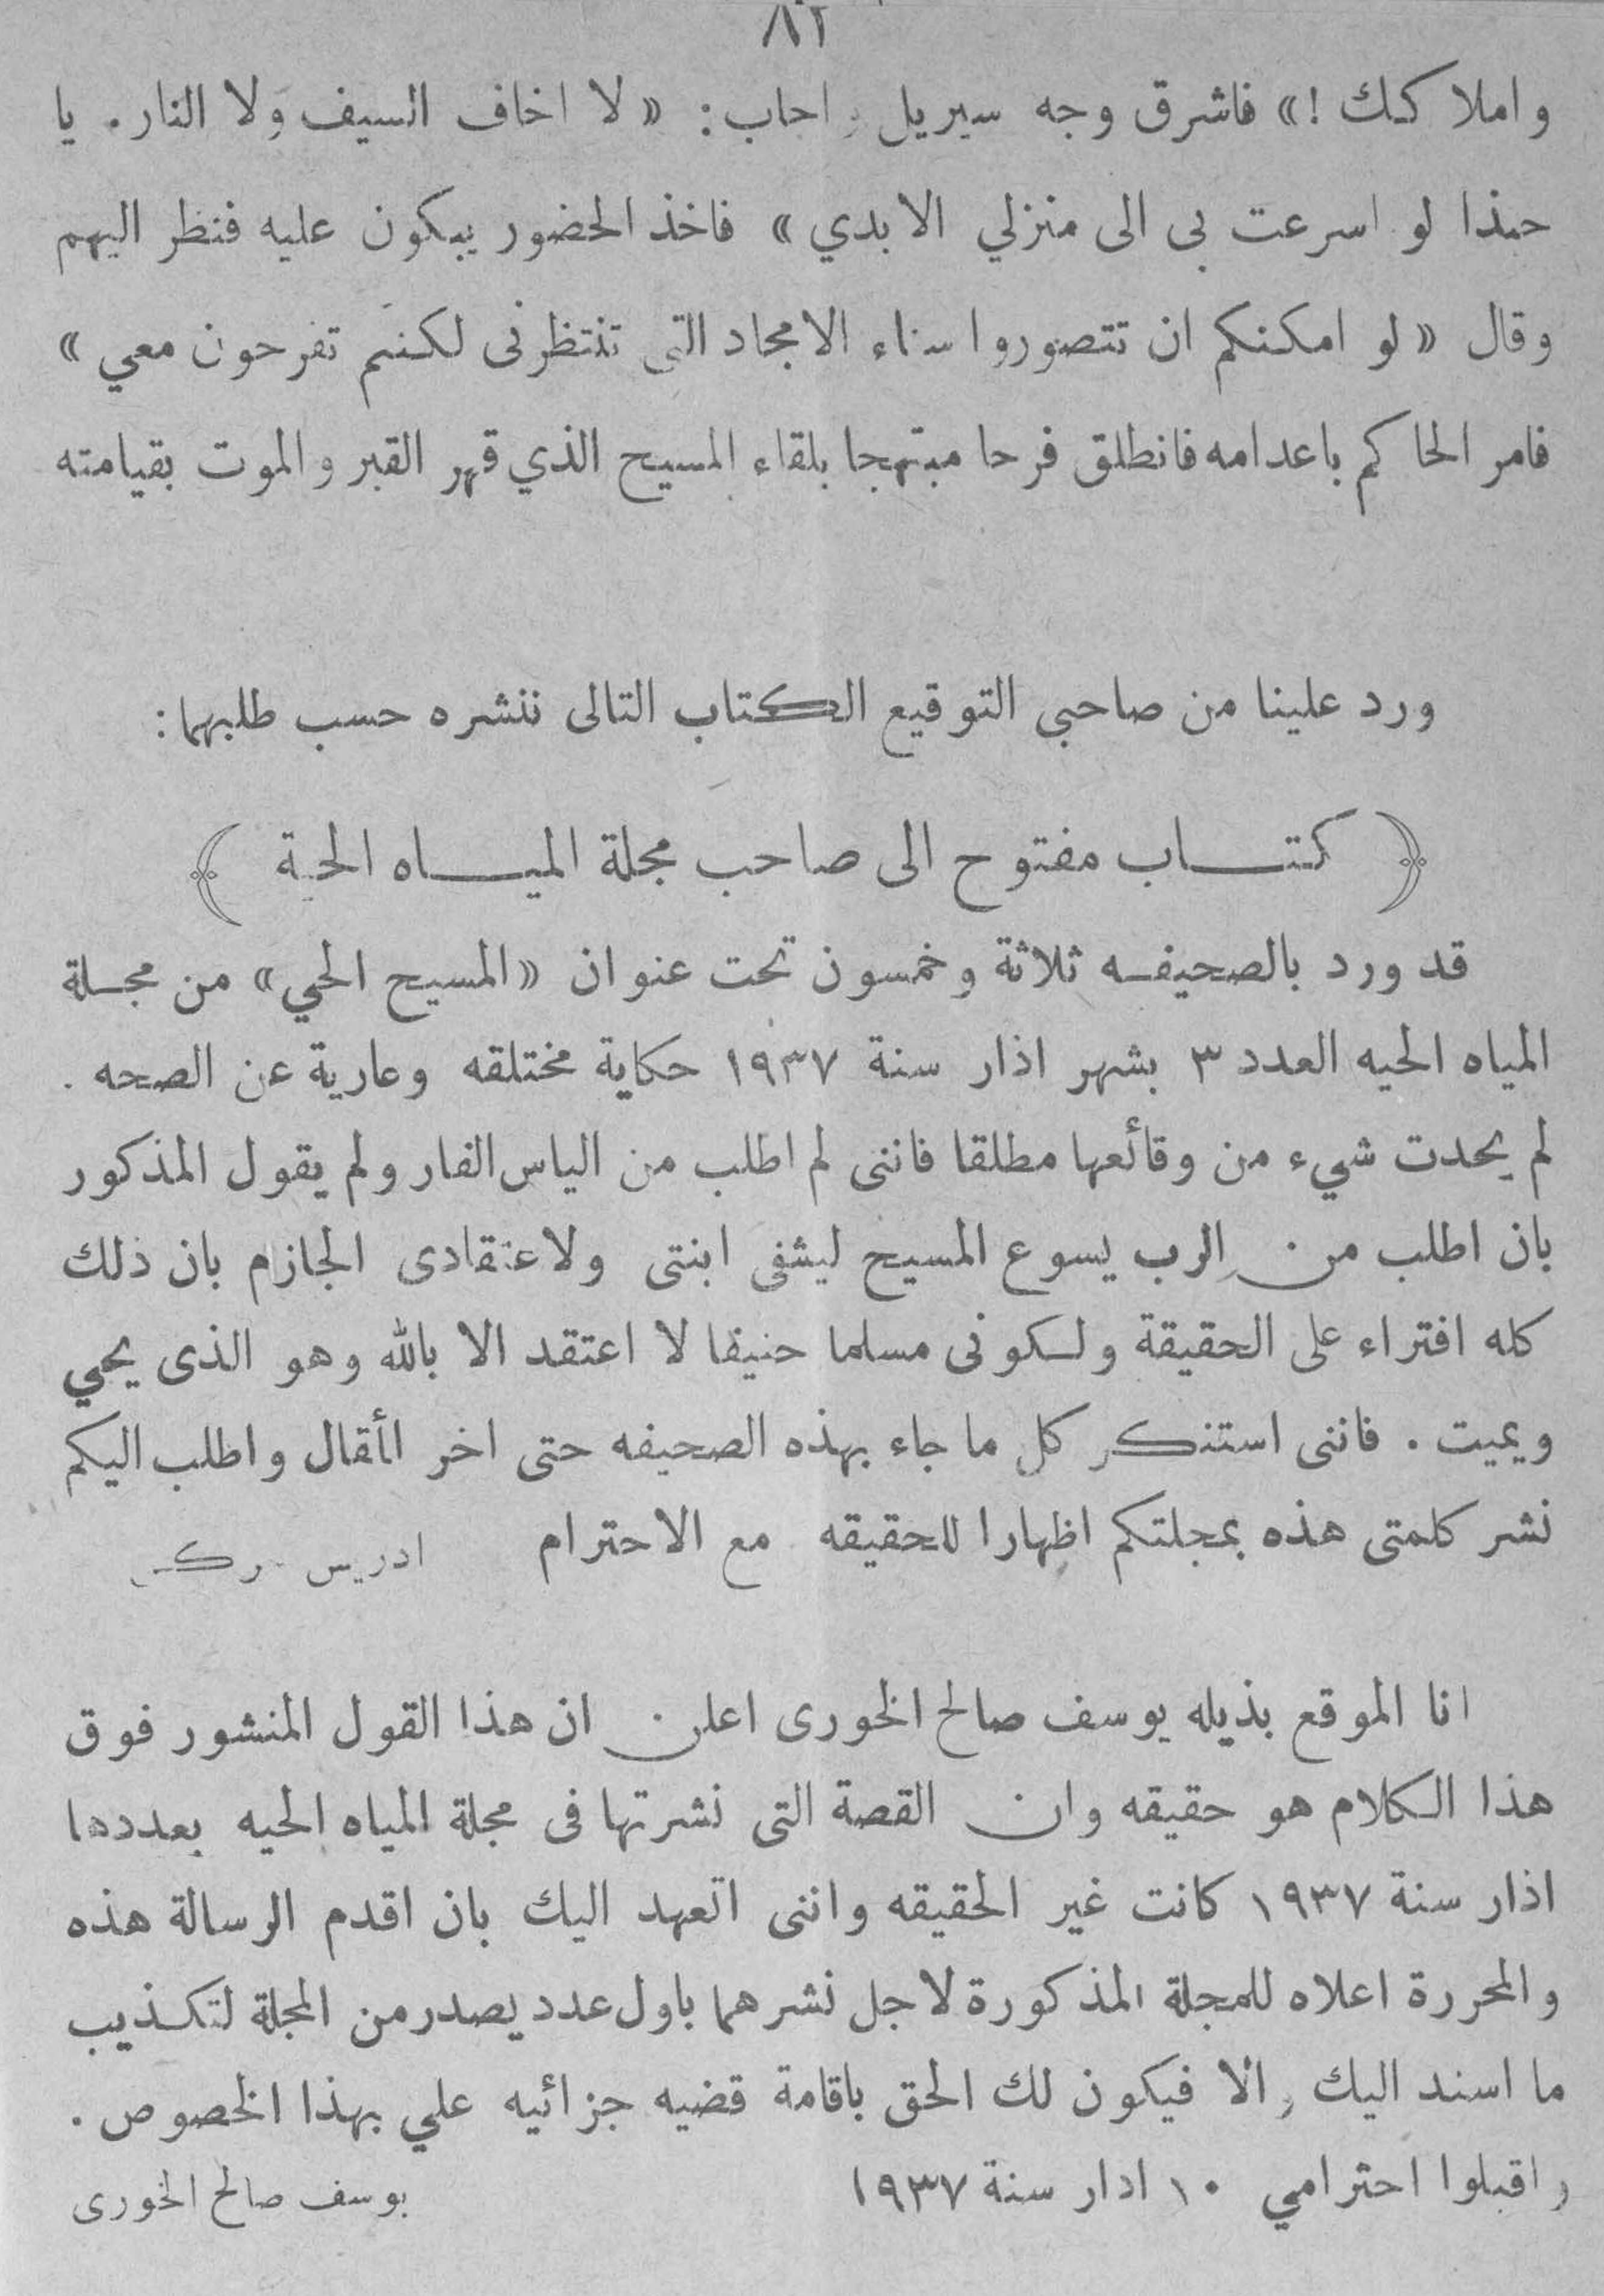 ٨٢
واملاكك!» فاشرق وجه سيريل واجاب: «لا اخاف السيف ولا النار. يا
حبذا لو اسرعت بي الى منزلي الابدي» فاخذ الحضور يبكون عليه فنظر اليهم
وقال «لو امكنكم ان تتصوروا سناء الامجاد التي تنتظرني لكنتم تفرحون معي»
فامر الحاكم باعدامه فانطلق فرحا مبتهجا بلقاء المسيح الذي قهر القبر والموت بقيامته
ورد علينا من صاحبي التوقيع الكتاب التالى ننشره حسب طلبهما:
﴿ كتـــاب مفتوح الى صاحب مجلة الميـــاه الحية ﴾
قد ورد بالصحيفه ثلاثة وخمسون تحت عنوان «المسيح الحي» من مجلة
المياه الحيه العدد ٣ بشهر اذار سنة ١٩٣٧ حكاية مختلقه وعارية عن الصحه .
لم يحدت شيء من وقائعها مطلقا فاننى لم اطلب من الياس الفار ولم يقول المذكور
بان اطلب من الرب يسوع المسيح ليشفى ابنتى ولاعتقادى الجازم بان ذلك
كله افتراء على الحقيقة ولكونى مسلما حنيفا لا اعتقد الا بالله وهو الذى يحيي
ويميت . فاننى استنكر كل ما جاء بهذه الصحيفه حتى اخر المقال واطلب اليكم
نشر كلمتى هذه بمجلتكم اظهارا للحقيقه مع الاحترام ادريس
انا الموقع بذيله يوسف صالح الخورى اعلن ان هذا القول المنشور فوق
هذا الكلام هو حقيقه وان القصة التى نشرتها فى مجلة المياه الحيه بعددها
اذار سنة ١٩٣٧ كانت غير الحقيقه واننى اتعهد اليك بان اقدم الرسالة هذه
والمحررة اعلاه للمجلة المذكورة لاجل نشرهما باول عدد يصدر من المجلة لتكذيب
ما اسند اليك والا فيكون لك الحق باقامة قضيه جزائيه علي بهذا الخصوص .
واقبلوا احترامي ١٠ ادار سنة ١٩٣٧ يوسف صالح الخورى